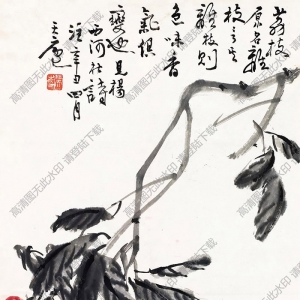 荔枝
原名離
枝言其
離枝則
色味香
氣俱
變也見楊
西河
注辛丑四月
高清图无此水印 请登陆下载
高清图无此水印 请登陆下载
高清图无此水印 请登陆下载
高清图无此水印 请登陆下载